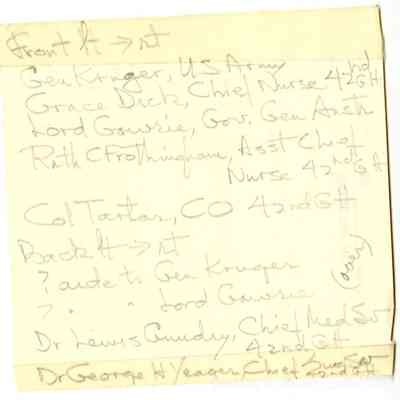 Front lt → rt
Gen Kruger, US Army
Grace Dick, Chief Nurse 42nd GH
Lord Gowrie, Gov. Gen Austr
Ruth C Frothingham, Asst Chief
Nurse 42nd GH
Col Tartar, CO 42nd GH
Back lt → rt
? aide to Gen Krueger
? " " Lord Gowrie (over)
Dr Lewis Gundry, Chief Med Sv
42nd GH
Dr George H Yeager, Chief Surg Sv
42nd GH